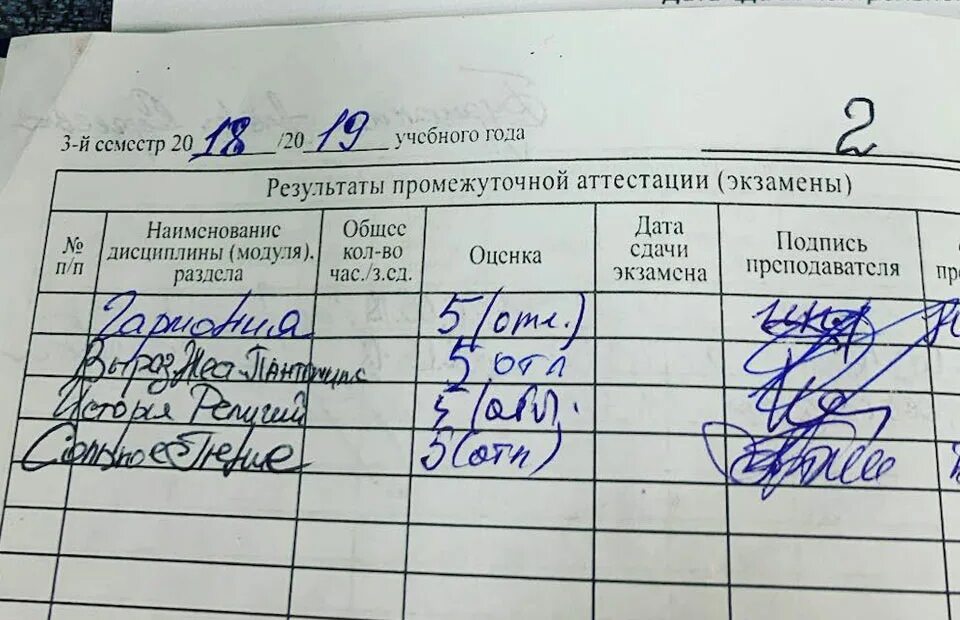 3-й семестр 2018/2019 учебного года 2
Результаты промежуточной аттестации (экзамены)
№ п/п Наименование дисциплины (модуля). раздела Общее кол-во час./з.ед. Оценка Дата сдачи экзамена Подпись преподавателя
Гармония 5 (отл.)
Выраз Жест Пантомима 5 отл
История Религий 5 (отл).
Сольное Пение 5 (отл)